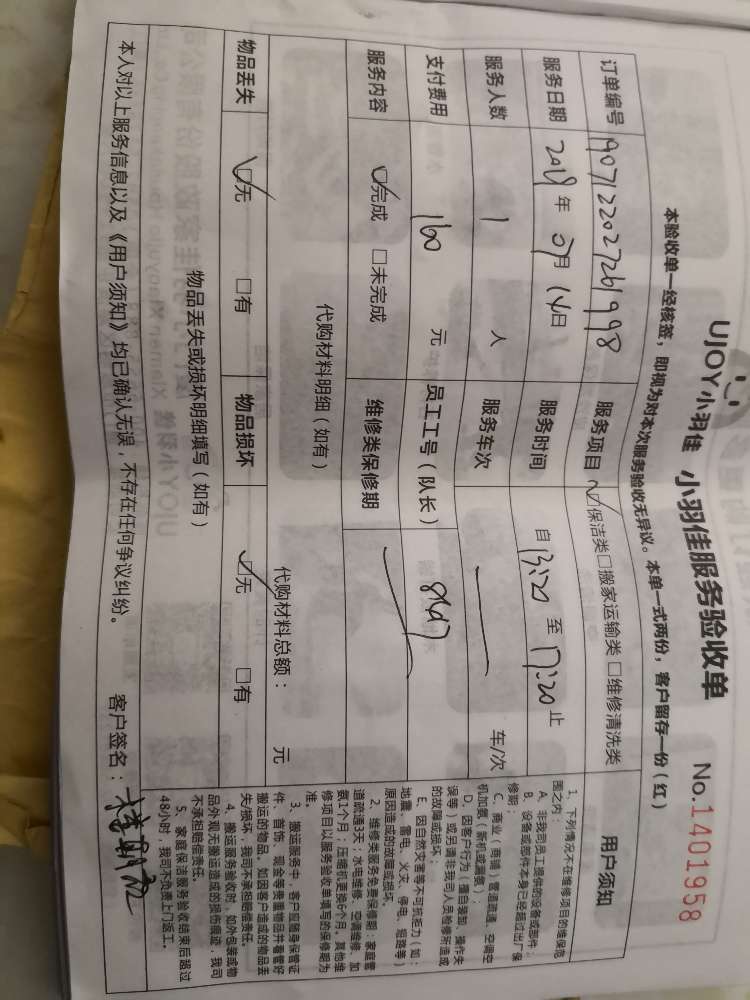 UJOY小羽佳 小羽佳服务验收单 No.1401958
本验收单一经核签，即视为对本次服务验收无异议。本单一式两份，客户留存一份（红）
订单编号 1907122027261998 服务项目 ☑保洁类□搬家运输类 □维修清洗类
服务日期 2019 年 07月 14日 服务时间 自 13:20 至 17:20 止
服务人数 1 人 服务车次 车/次
支付费用 160 元 员工工号（队长）
服务内容 ☑完成 □未完成 维修类保修期
代购材料明细（如有）
代购材料总额： 元
物品丢失 ☑无 □有 物品损坏 ☑无 □有
物品丢失或损坏明细填写（如有）
本人对以上服务信息以及《用户须知》均已确认无误，不存在任何争议纠纷。 客户签名：
用户须知
1、下列情况不在维修项目的维保范
围之内：
A、非我司员工提供的设备或部件；
B、设备或部件本身已经超过出厂保
修期；
C、商业（商铺）管道疏通、空调空
机加氨（新机或漏氨）；
D、因客户行为（擅自装卸、操作失
误等）或另请非我司人员检修所造成
的故障或损坏。
E、因自然灾害等不可抗拒力（如：
地震、雷电、火灾、停电、短路等）
原因造成的故障或损坏。
2、维修类服务免费保修期：家庭管
道疏通3天；水电维修、空调维修、加
氨1个月；压缩机更换6个月。其他维
修项目以服务验收单填写的保修期为
准。
3、搬运服务中，客户应随身保管证
件、首饰、现金等贵重物品并看管好
搬运的物品。如因客户造成的物品丢
失/损坏，我司不承担赔偿责任。
4、搬运服务验收时，如外包装或物
品外观无搬运造成的损伤痕迹，我司
不承担赔偿责任。
5、家庭保洁服务验收结束后超过
48小时，我司不负责上门返工。